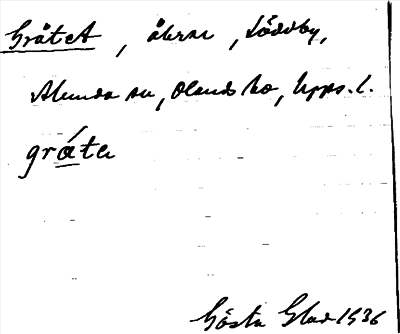 Gråtet, åkrar, Söderby,
Alunda sn, Olands hd, Upps. l.
gråte
Gösta Glad 1936